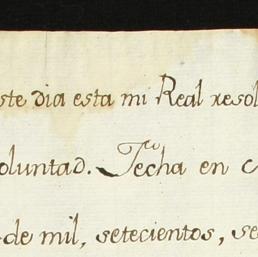 ste dia esta mi Real resol
oluntad. Fecha en
de mil, setecientos, se